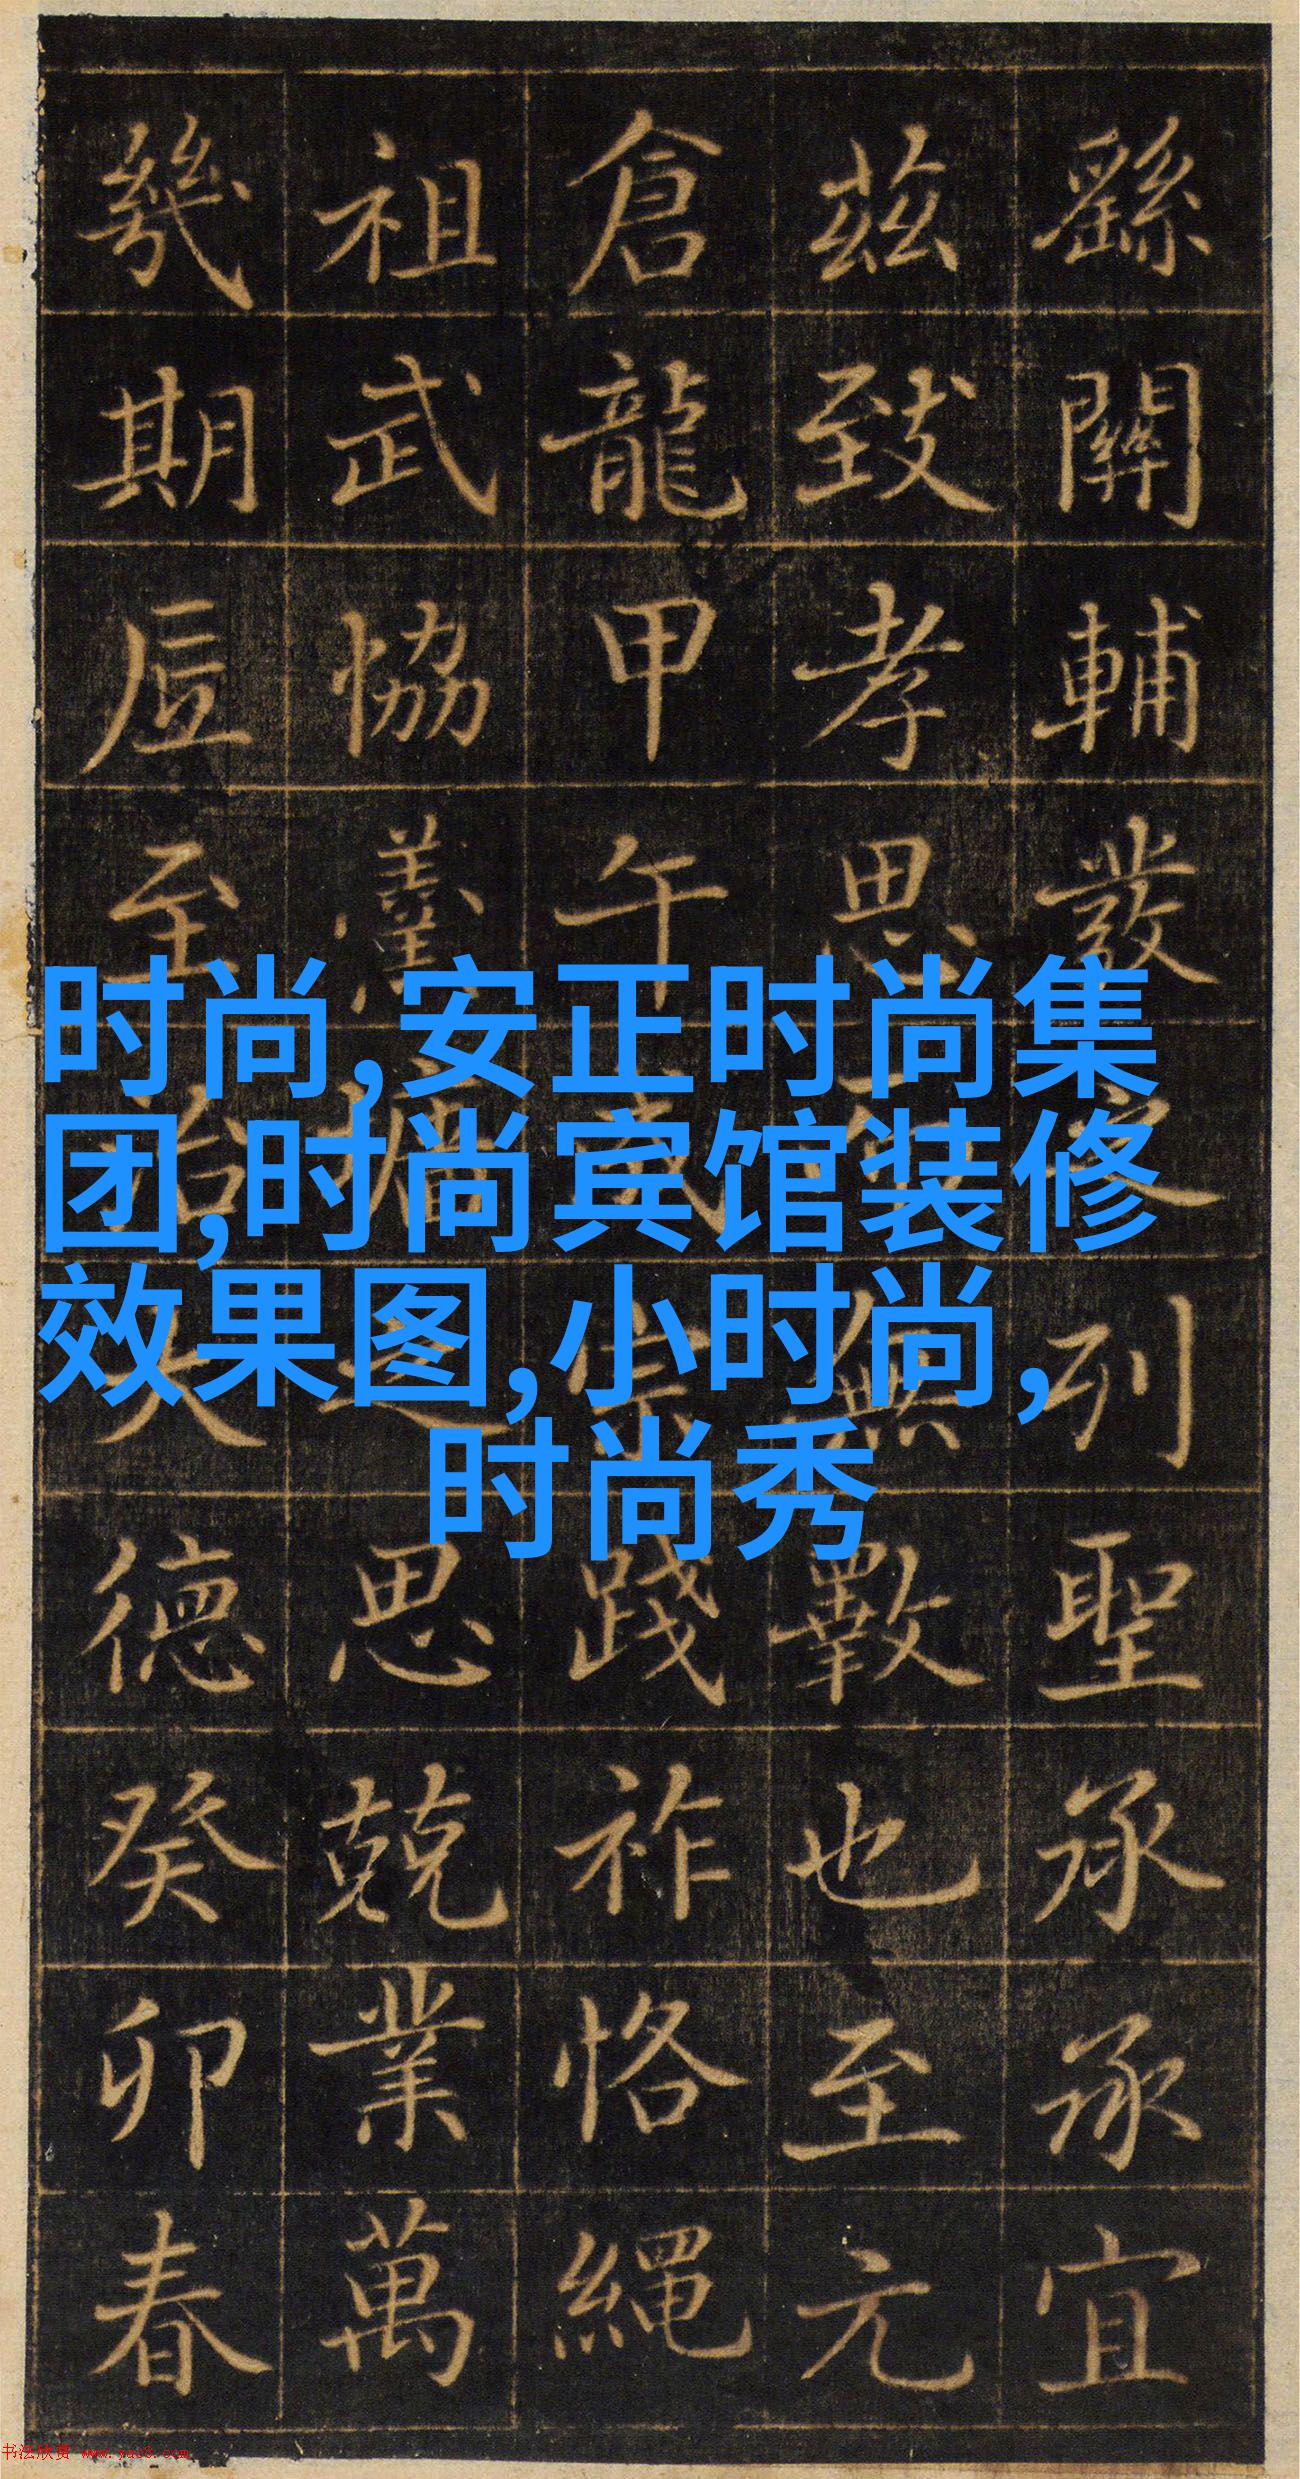 繇關輔發列聖承承宜
茲致孝思無斁也至元
倉龍甲午成宗踐祚恪繩
祖武恊羹墻之思兢業萬
幾期底至治大德癸卯春
时尚,安正时尚集
团,时尚宾馆装修
效果图,小时尚,
时尚秀
书法欣赏 www.yac8.com